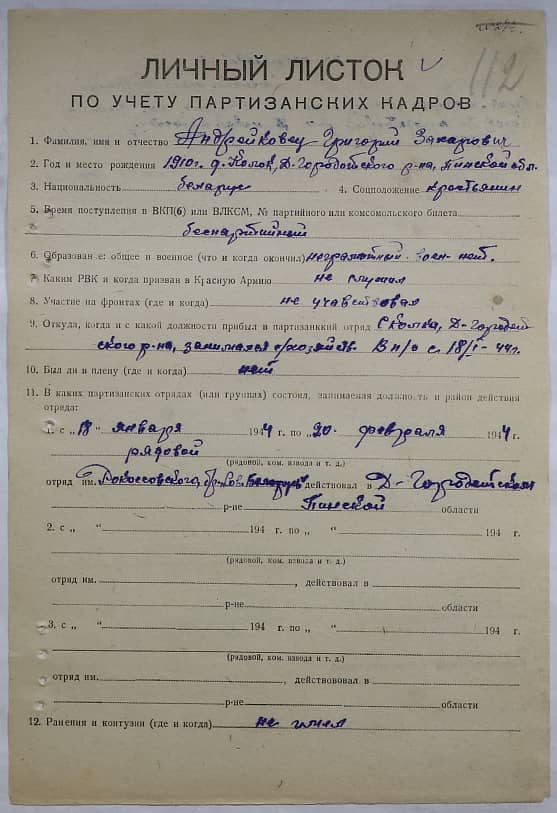 112
ЛИЧНЫЙ ЛИСТОК
ПО УЧЕТУ ПАРТИЗАНСКИХ КАДРОВ
1. Фамилия, имя и отчество Андрейковец Григорий Захарович
2. Год и место рождения 1910г. д. Колок, Д-Городокского р-на, Пинской обл.
3. Национальность беларус 4. Соцположение крестьянин
5. Время поступления в ВКП(б) или ВЛКСМ, № партийного или комсомольского билета
беспартийный
6. Образование: общее и военное (что и когда окончил) неграмотный воен- нет.
7. Каким РВК и когда призван в Красную Армию не служил
8. Участие на фронтах (где и когда) не учавствовал
9. Откуда, когда и с какой должности прибыл в партизанкий отряд С Колка, Д-Городок
ского р-на, занимался с/хозяйств. В п/о с 18/I-44г.
10. Был ли в плену (где и когда) нет
11. В каких партизанских отрядах (или группах) состоял, занимаемая должность и район действия
отряда:
1. с „18 “ января 1944 г. по „20 “ февраля 1944 г.
рядовой
(рядовой, ком. взвода и т. д.)
отряд им. Рокоссовского, бр. Сов. Белорусь действовал в Д-Городокском
р-не Пинской области
2. с „ “ 194 г. по „ “ 194 г.
(рядовой, ком. взвода и т. д.)
отряд им. , действовал в
р-не области
3. с „ “ 194 г. по „ “ 194 г.
(рядовой, ком. взвода и т. д.)
отряд им. , действововал в
р-не области
12. Ранения и контузии (где и когда) не имел